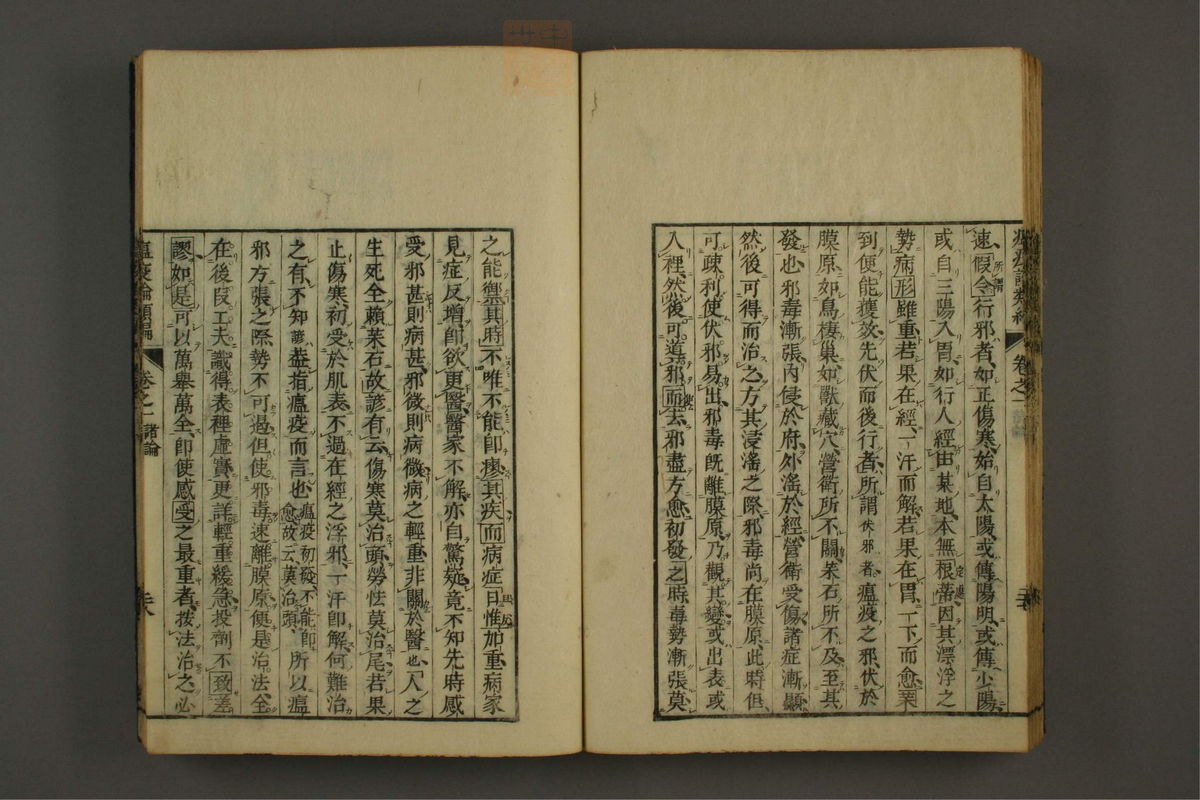 速、所謂假令行邪者、如正傷寒、始自太陽、或傳陽明、或傳少陽、
或自三陽入胃、如行人經由某地、本無根蒂、因其漂浮之
勢、病形雖重、若果在經、一汗而解、若果在胃、一下而愈、藥
到便能獲效、先伏而後行者、所謂伏邪者。瘟疫之邪、伏於
膜原、如鳥棲巢、如獸藏穴、營衛所不關、藥石所不及、至其
發也、邪毒漸張、内侵於府、外淫於經、營衛受傷、諸症漸顯、
然後可得而治之、方其浸淫之際、邪毒尚在膜原、此時但
可疎利、使伏邪易出、邪毒既離膜原、乃觀其變、或出表、或
入裡、然後可導邪而去、邪盡方愈、初發之時、毒勢漸張、莫
之能禦、其時不唯不能即瘳其疾、而病症日惟加重、病家
見症反增、即欲更醫、醫家不解、亦自驚疑、竟不知先時感
受邪甚、則病甚、邪微則病微、病之輕重、非關於醫也、人之
生死、全賴藥石、故諺有云、傷寒莫治頭、勞怯莫治尾、若果
止傷寒初受於肌表、不過在經之浮邪、一汗即解、何難治
之有、不知諺盖指瘟疫而言也、瘟疫初發、不能即愈、故云莫治頭、所以瘟
邪方張之際、勢不可遏、但使邪毒速離膜原、便是治法、全
在後段工夫、識得表裡虛實、更詳輕重緩急、投劑不致差
謬、如是可以萬舉萬全、即使感受之最重者、按法治之、必
瘟疫論類編
卷之一
諸論